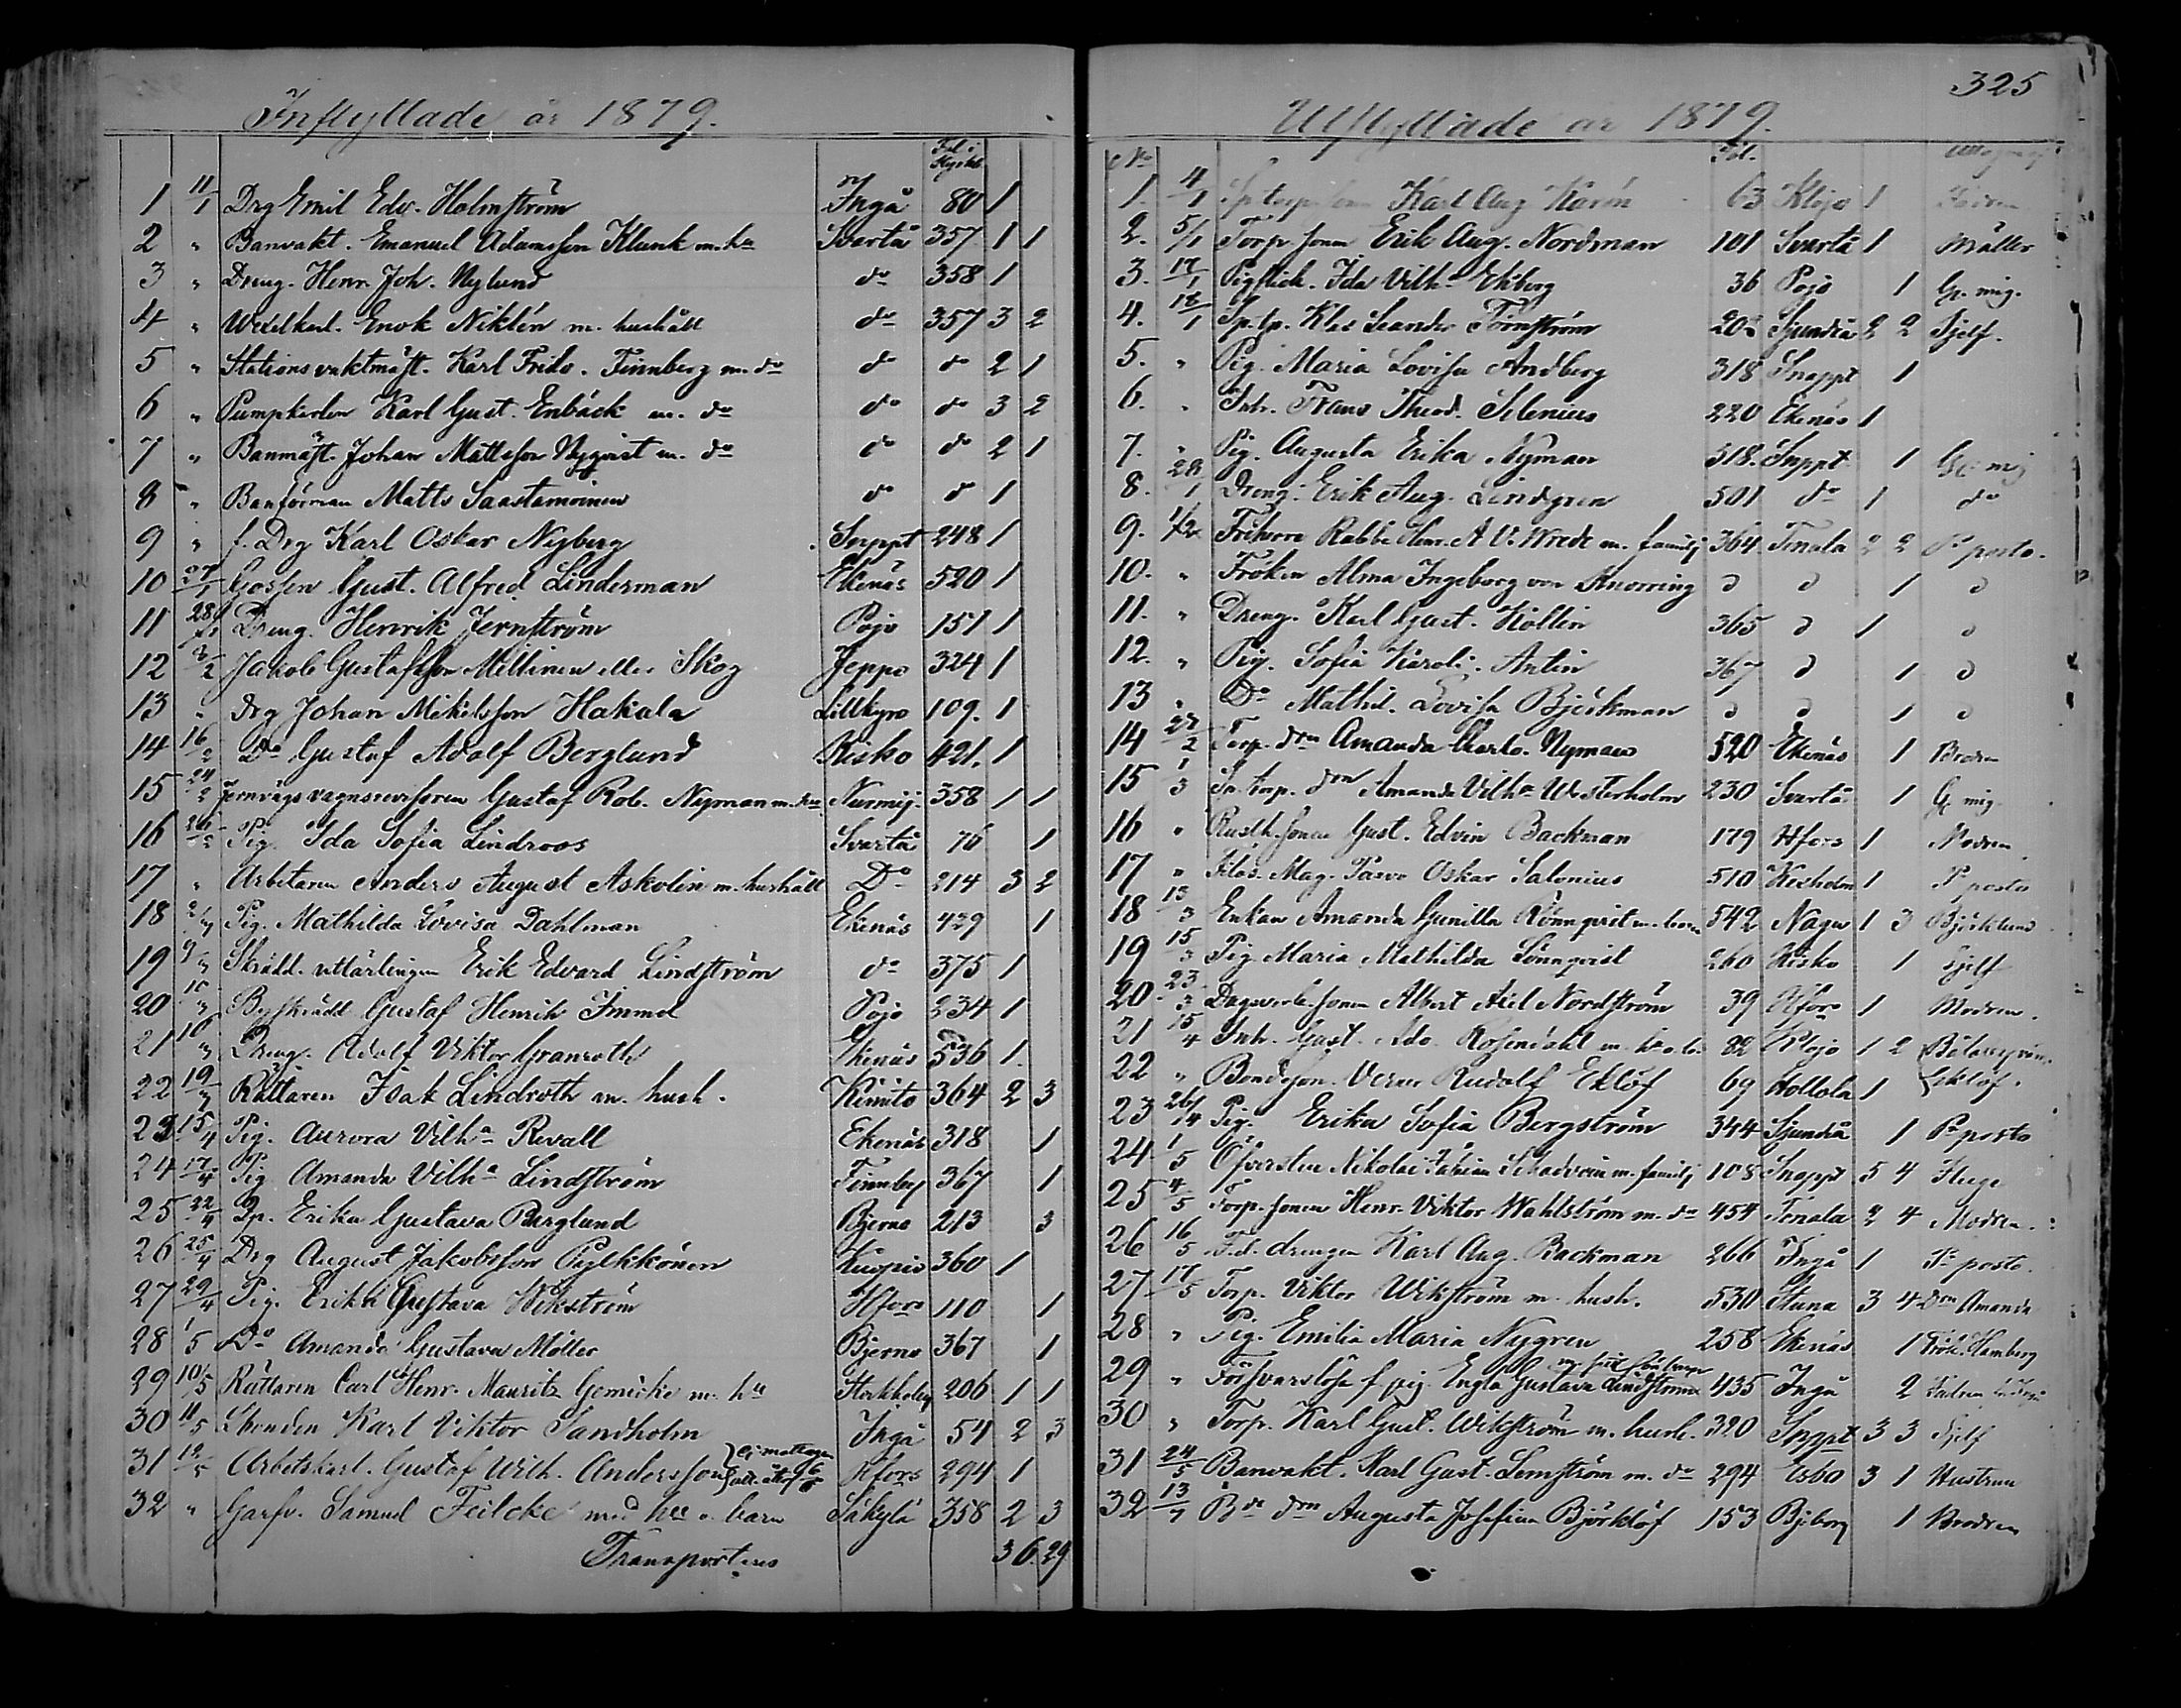 Inflyttade år 1879.
Fol. i Kyrkb.
1 11/1 Drg Emil Edv. Holmström Ingå 80 1
2 " Banvakt. Emanuel Adamsson Klunk m. hu Svartå 357 1 1
3 " Dräng. Henr. Joh. Nylund do 358 1
4 " Wexelkarl. Enok Niklén m. hushåll do 357 3 2
5 " Stations vaktmäst. Karl Frido. Finnberg m. do do do 2 1
6 " Pumpkarlen Karl Gust. Enbäck m. do do do 3 2
7 " Banmäst. Johan Mattsson Nyqvist m. do do do 2 1
8 " Banförman Matts Saastamoinen do do 1
9 " f. Drg Karl Oskar Nyberg Snppt 248 1
10 27/1 Gossen Gust. Alfred Linderman Ekenäs 520 1
11 28/1 Dräng. Henrik Jernström Pojo 151 1
12 3/2 Jakob Gustafsson Mittinen eller Skog Jeppo 324 1
13 " Drg Johan Mikelsson Hakala Lillkyro 109. 1
14 16/2 Do Gustaf Adolf Berglund Kisko 421. 1
15 24/2 Jernvägsvagnsrevisoren Gustaf Rob. Nyman m. hu Nurmij. 358 1 1
16 26/2 Pig. Ida Sofia Lindroos Svartå 76 1
17 " Arbetaren Anders August Askolin m. hushåll Do 214 3 2
18 2/3 Pig. Mathilda Lovisa Dahlman Ekenäs 429 1
19 9/3 Skrädd. utlärlingen Erik Edvard Lindström do 375 1
20 10/3 Byskrädd Gustaf Henrik Immel Pojo 234 1
21 16/3 Dräng. Adolf Viktor Granroth Ekenäs 536 1.
22 19/3 Rättaren Isak Lindroth m. hush. Kimito 364 2 3
23 15/4 Pig. Aurora Vilha Revall Ekenäs 318 1
24 17/4 Pig Amanda Vilha Lindström Finnby 367 1
25 22/4 Erika Gustava Berglund Bjerno 213 3
26 25/4 Drg August Jakobsson Pylkkönen Kuopio 360 1
27 29/4 Pig. Erika Gustava Wikström Hfors 110 1
28 1/5 Do Amanda Gustava Möller Bjerno 367 1
29 10/5 Rättaren Carl Henr. Mauritz Gemicke m. hu Stockholm 206 1 1
30 11/5 Karl Viktor Sandholm Ingå 54 2 3
31 12/5 Arbetskarl. Gustaf Wilh. Andersson Hfors 294 1
32 " Garfv. Samuel Feilcke med hu o. barn Säkylä 358 2 3
Transporteras 36. 29
325
Utflyttade år 1879.
No Fol.
1. 4/1 Karl Aug 63 Klojo 1 Fadren
2. 5/1 Torp. sonen Erik Aug. Nordman 101 Svartå 1 Möller
3. 17/1 Pigflick. Ida Vilha Ekberg 36 Pojo 1 Gg. mig.
4. 18/1 Sp. tp. Klas Leander Törnström 202 Sjundeå 2 2 Sjelf.
5. " Pig. Maria Lovisa Andberg 318 Snappt 1
6. " Inh. Frans Theod. Selenius 220 Ekenäs 1
7. " Pig. Augusta Erika Nyman 318. Snppt 1 Gg mig
8. 28/1 Dräng. Erik Aug. Lindgren 501 do 1 do
9. 1/2 Friherre Rabbe Henr. A. V. Wrede m. familj 364 Tenala 2 2 Pr posto.
10. " Fröken Alma Ingeborg von Knorring d d 1 d
11. " Dräng. Karl Gust. Kollin 365 d 1 d
12. " Pig. Sofia Karoli. Antin 367 d 1 d
13 " Do Mathil. Lovisa Björkman d d 1 d
14 27/2 Torp. drn Amanda Charlo. Nyman 520 Ekenäs 1 Brodren
15 1/3 Sn. torp. drn Amanda Vilha Westerholm 230 Svartå 1 Gg mig.
16 " Rusth. sonen Gust. Edvin Backman 179 Hfors 1 Modren
17 " Filos. Mag. Paavo Oskar Salonius 510 Kexholm 1 Pr posto
18 13/3 Enkan Amanda Gunilla Rönnqvist m. barn 542 Nagu 1 3 Björklund
19 15/3 Pig Maria Mathilda Lönnqvist 260 Kisko 1 Sjelf
20. 23/3 Dagsverk. sonen Albert Axel Nordström 39 Hfors 1 Modren.
21 15/4 Inh. Gust. Ado. Rosendahl m. hu o. b. 82 Klojo 1 2
22 " Bondeson. Verner Rudolf Eklöf 69 Hollola 1 Eklöf.
23 26/4 Pig. Erika Sofia Bergström 344 Sjundeå 1 Pr posto
24 1/5 Öfversten Nikolai Fabian m. familj 105 Snappt 5 4
25 4/5 Torp. sonen Henr. Viktor Wahlström m. do 454 Tenala 2 4 Modren.
26 16/5 F.d. drengen Karl Aug. Backman 266 Ingå 1 Pr posto.
27 17/5 Torp. Viktor Wikström m. hush. 530 Stuna 3 4 Drn Amanda
28 " Pig. Emilia Maria Nygren 258 Ekenäs 1 Frök. Hamberg
29 " Försvarslösa f. pig. Engla Gustava Lindström 435 Ingå 2 Fadren
30 " Torp. Karl Gust. Wikström m. hush. 320 Snppt 3 3 Sjelf
31 24/5 Banvakt. Karl Gust. Lemström m. do 294 Esbo 3 1 Hustrun
32 13/7 Bde drn Augusta Josefina Björklöf 153 Bjöborg 1 Brodren